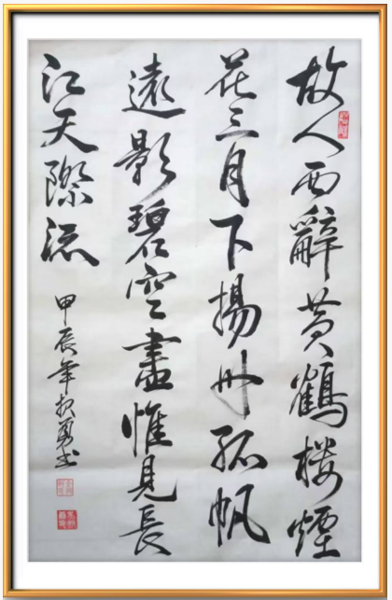 故人西辭黄鶴楼煙
花三月下揚州孤帆
遠影碧空盡惟見長
江天際流
甲辰年勇书